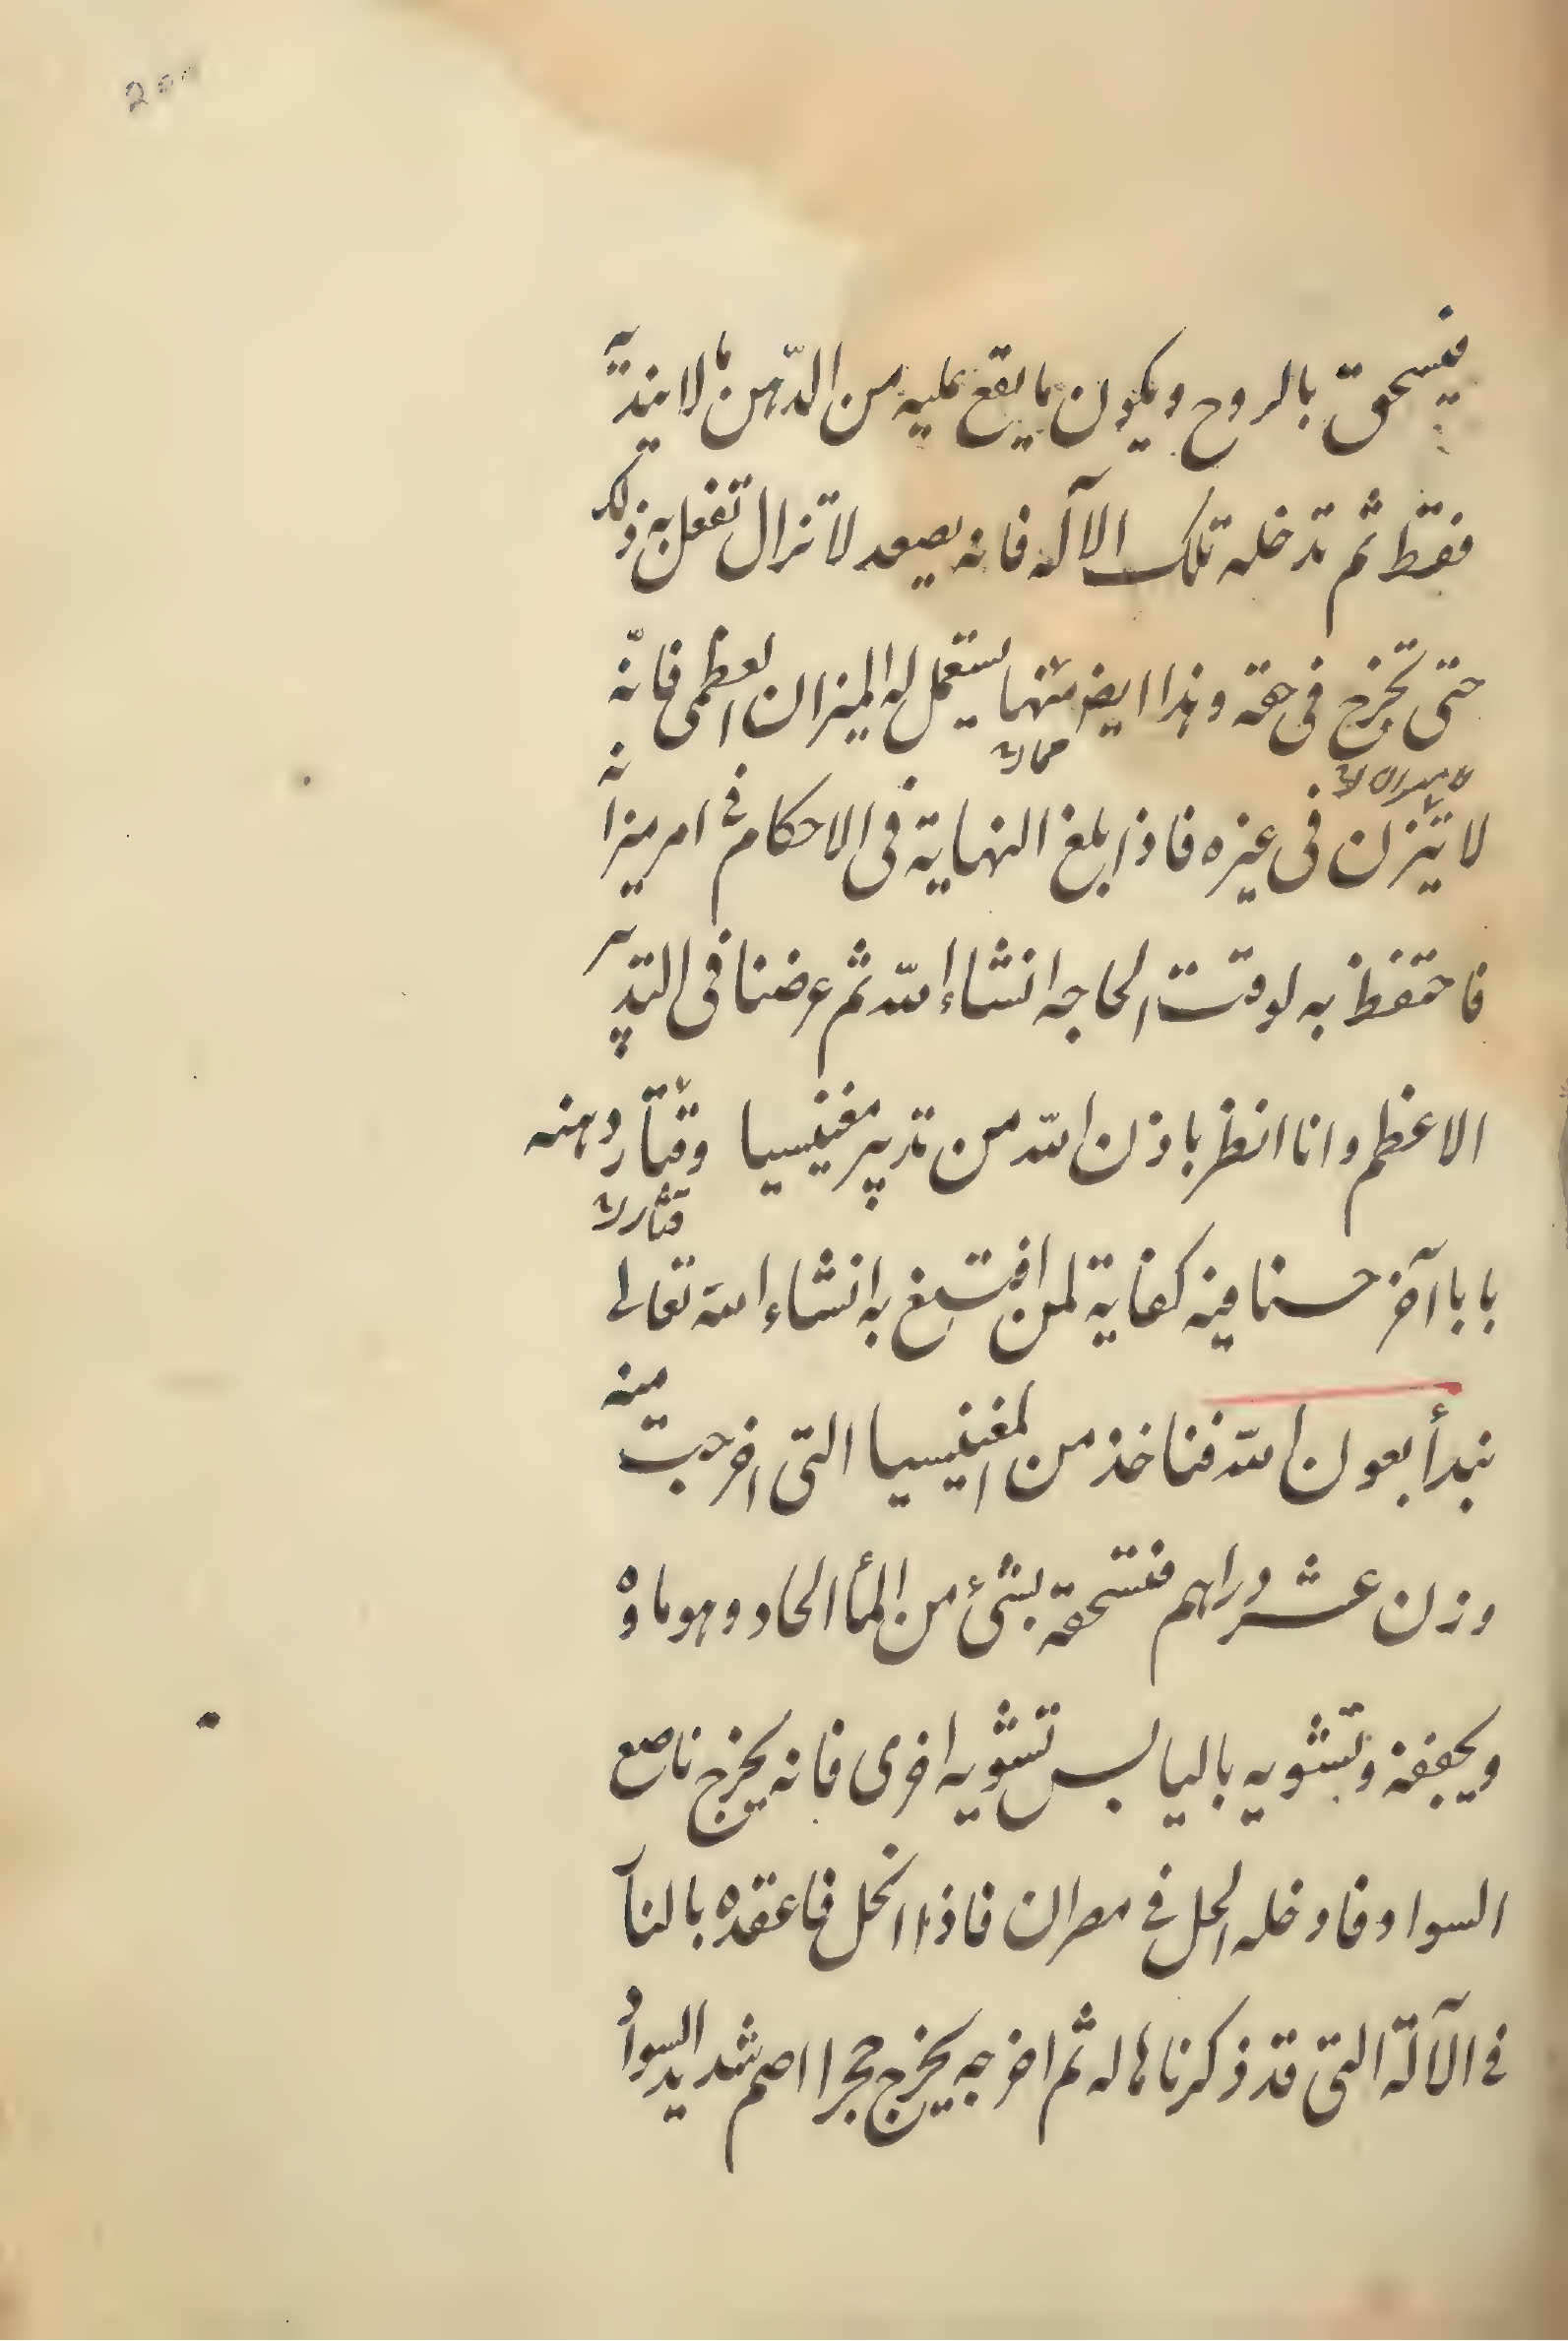 فيسحق بالروح ويكون ما يقع عليه من الدّهن ما لا يندآ
فقط ثم تدخله تلك الآله فانه يصعد لا تزال تفعل به ذلك
حتى تخرج فى حقه وهذا ايض منها يستعمل له الميزان العظمى فانّه
مما
لا يتزن فى غيره فاذا بلغ النهاية فى الاحكام فى امر ميزانه
فاحتفظ به لوقت الحاجه انشاء الله ثم عرضنا فى التدبير
الاعظم وانا انظر باذن الله من تدبير مغنيسيا وقثار دهنه
قثار
بابا آخر حسنا فيه كفاية لمن اقتنع به انشاء الله تعالى
نبدأ بعون الله فناخذ من المغنيسيا التى اخرجت منه
وزن عشر دراهم فتسحقه بشئ من المأ الحاد وهو ماؤه
ويجففه وتشويه باليابس تشويه اخرى فانه يخرج ناصع
السواد فادخله الحل فى مصران فاذا انحل فاعقده بالنآ
فى الآلة التى قد ذكرناها له ثم اخرجه يخرج حجرا اصم شديد السواد